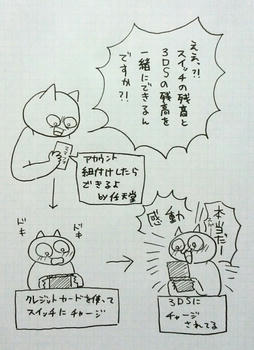 ええ、?!
スイッチの残高と
3DSの残高を
一緒にできるん
ですか?!
アカウント
紐付けしたら
できるよ
by任天堂
ドキ
ドキ
クレジットカードを使って
スイッチにチャージ
感動
本当だー
3DSに
チャージ
されてる